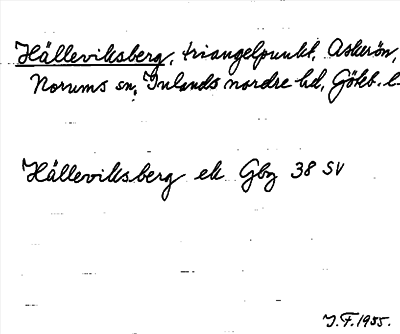 Hälleviksberg, triangelpunkt, Askerön,
Norums sn, Inlands nordre hd, Göteb. l.
Hälleviksberg ek Gbg 38 SV
J.F. 1955.